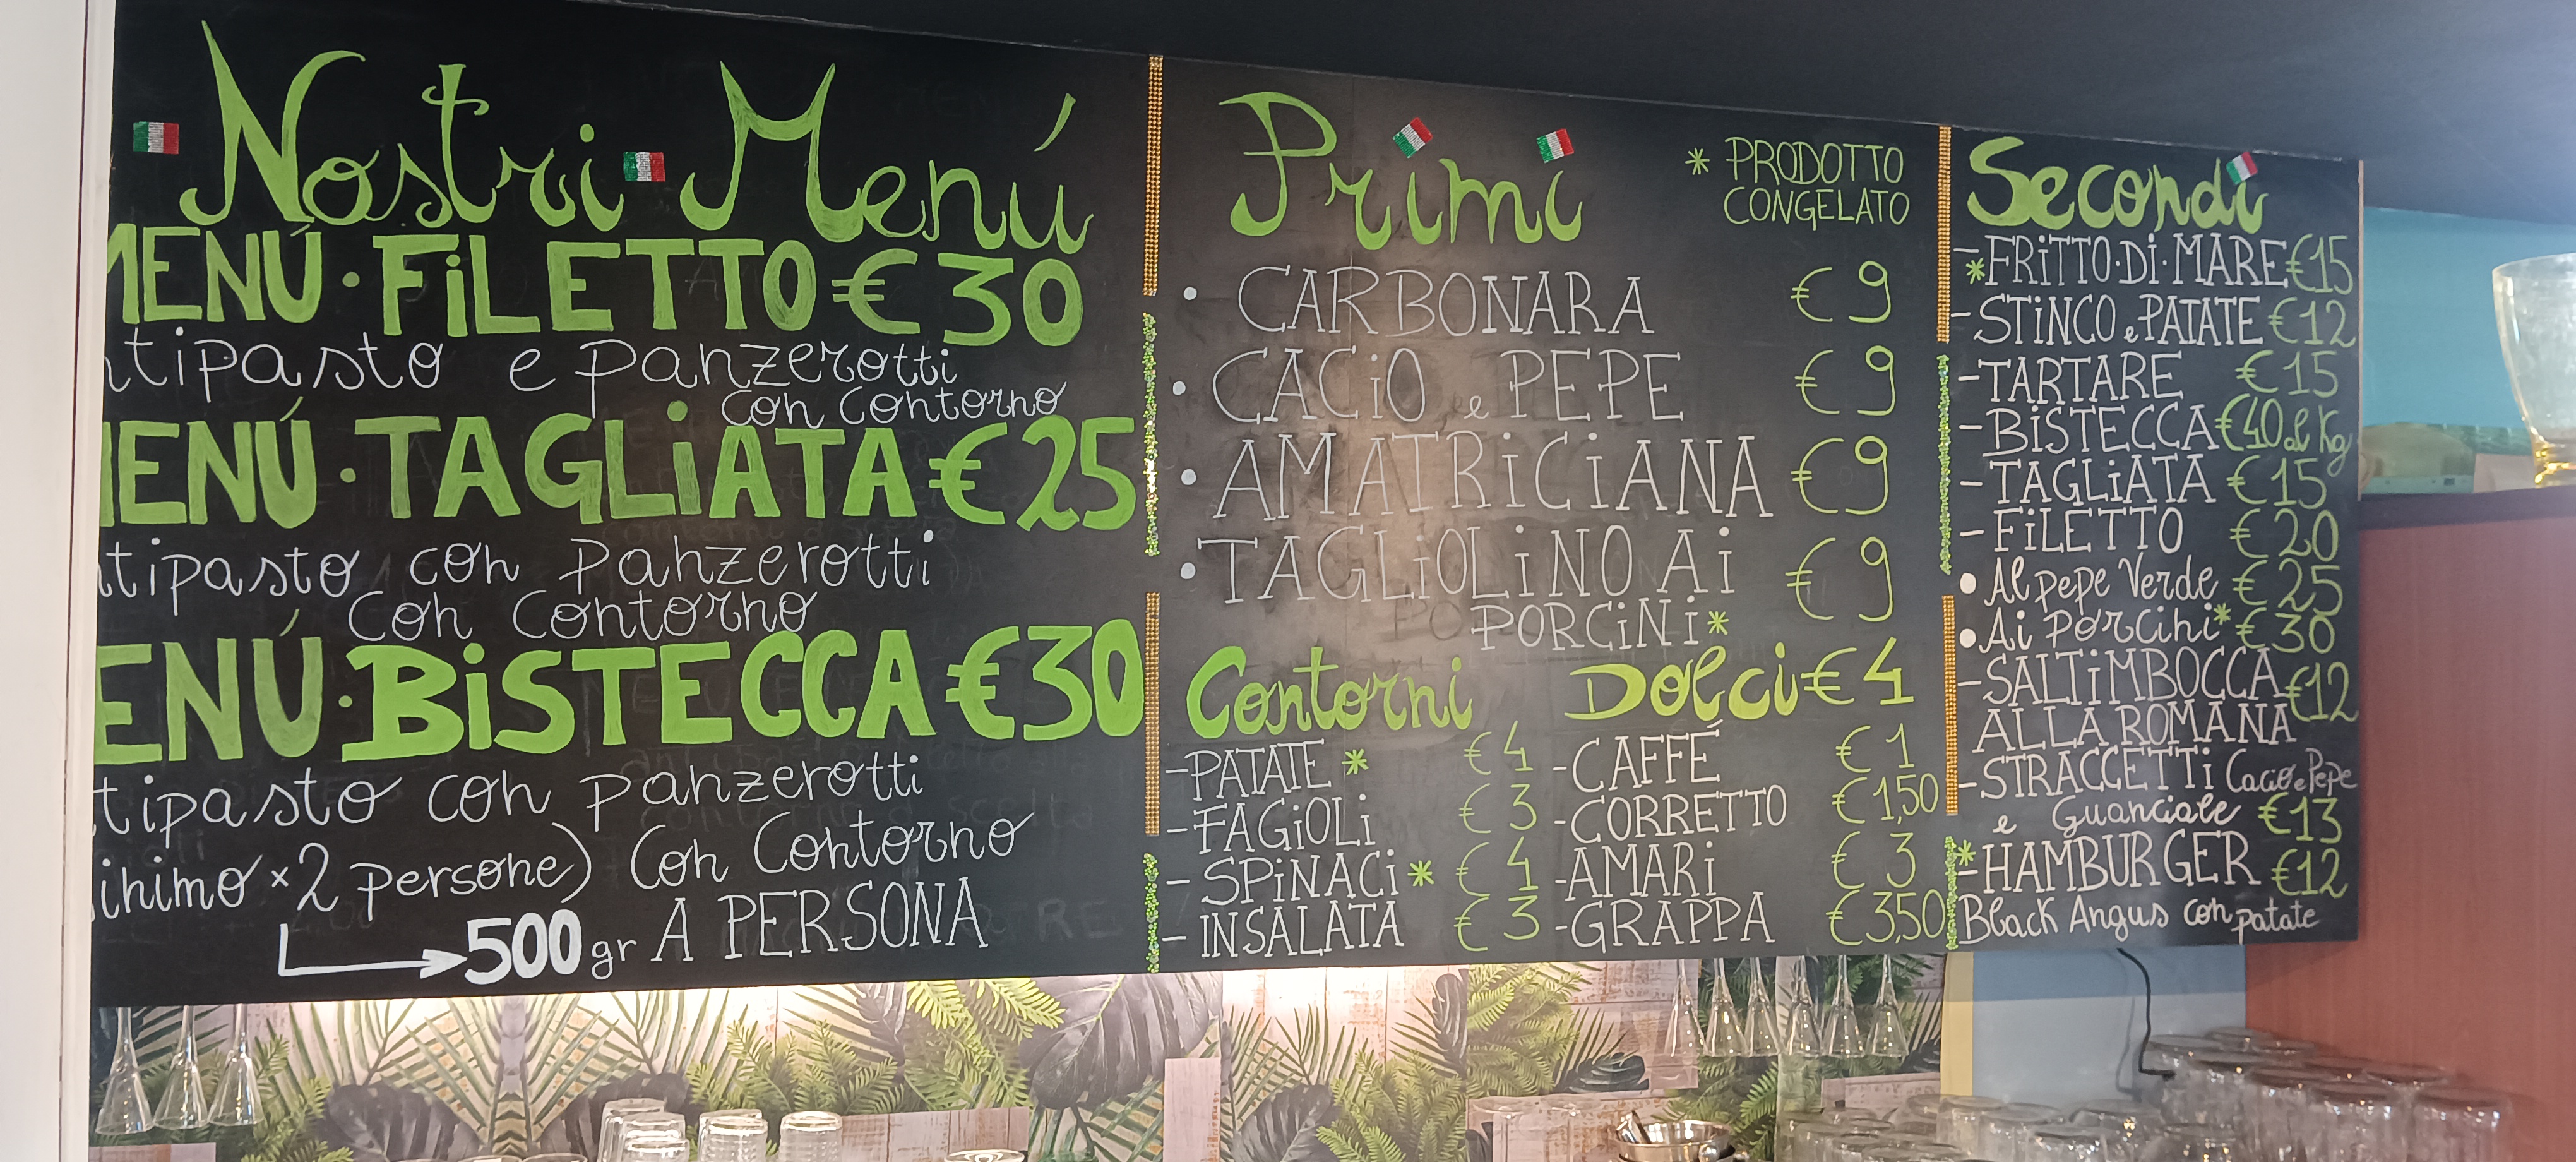 Nostri Menú
MENÚ · FiLETTO € 30
ntipasto e panzerotti
con contorno
MENÚ · TAGLiATA € 25
ntipasto con panzerotti
Con Contorno
ENÚ · BiSTECCA € 30
tipasto con panzerotti
inimo × 2 persone) Con Contorno
500 gr A PERSONA
Primi
* PRODOTTO
CONGELATO
• CARBONARA € 9
• CACiO e PEPE € 9
• AMATRiCiANA € 9
• TAGLiOLiNO Ai € 9
PORCiNi *
Contorni
- PATATE * € 4
- FAGiOLi € 3
- SPiNACi * € 4
- INSALATA € 3
Dolci € 4
- CAFFÉ € 1
- CORRETTO € 1,50
- AMARi € 3
- GRAPPA € 3,50
Secondi
- * FRiTTO · Di · MARE € 15
- STiNCO e PATATE € 12
- TARTARE € 15
- BiSTECCA € 40 al Kg
- TAGLiATA € 15
- FiLETTO € 20
• Al pepe Verde € 25
• Ai Porcini * € 30
- SALTiMBOCCA € 12
ALLA ROMANA
- STRACCETTi Cacio e Pepe
e Guanciale € 13
* - HAMBURGER € 12
Black Angus con patate